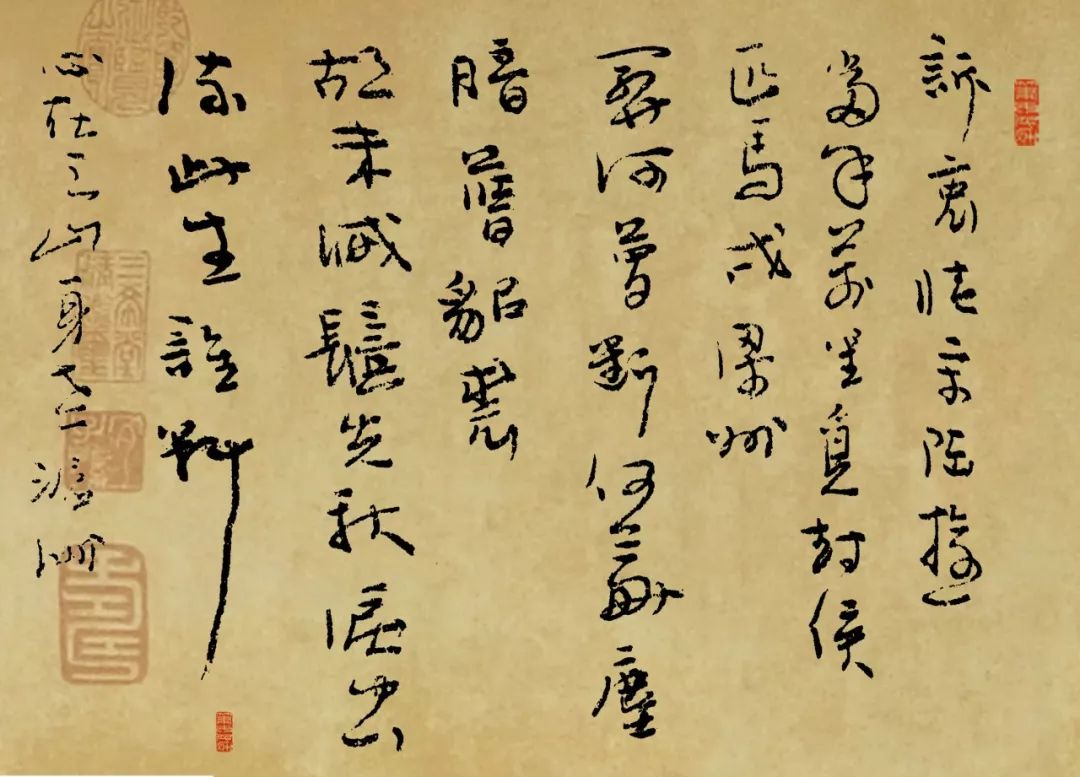 訴衷情宋陸遊
當年萬里覓封侯
匹馬戍梁州
關河夢斷何處塵
暗舊貂裘
胡未滅鬢先秋淚空
流此生誰料
心在天山身老滄洲